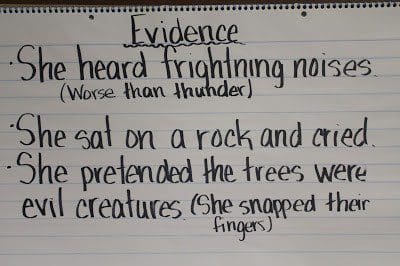 Evidence
· She heard frightning noises.
(Worse than thunder)
· She sat on a rock and cried.
· She pretended the trees were
evil creatures. (She snapped their
fingers)